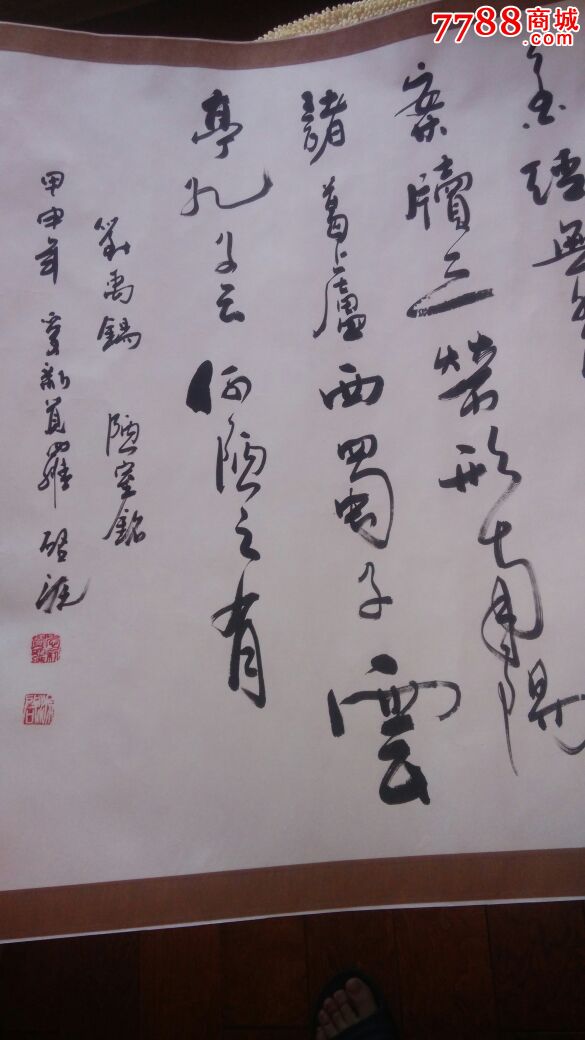 7788商城
.com
金經無
案牘之勞形南陽
諸葛廬西蜀子雲
亭孔子云何陋之有
劉禹錫 陋室銘
甲申年